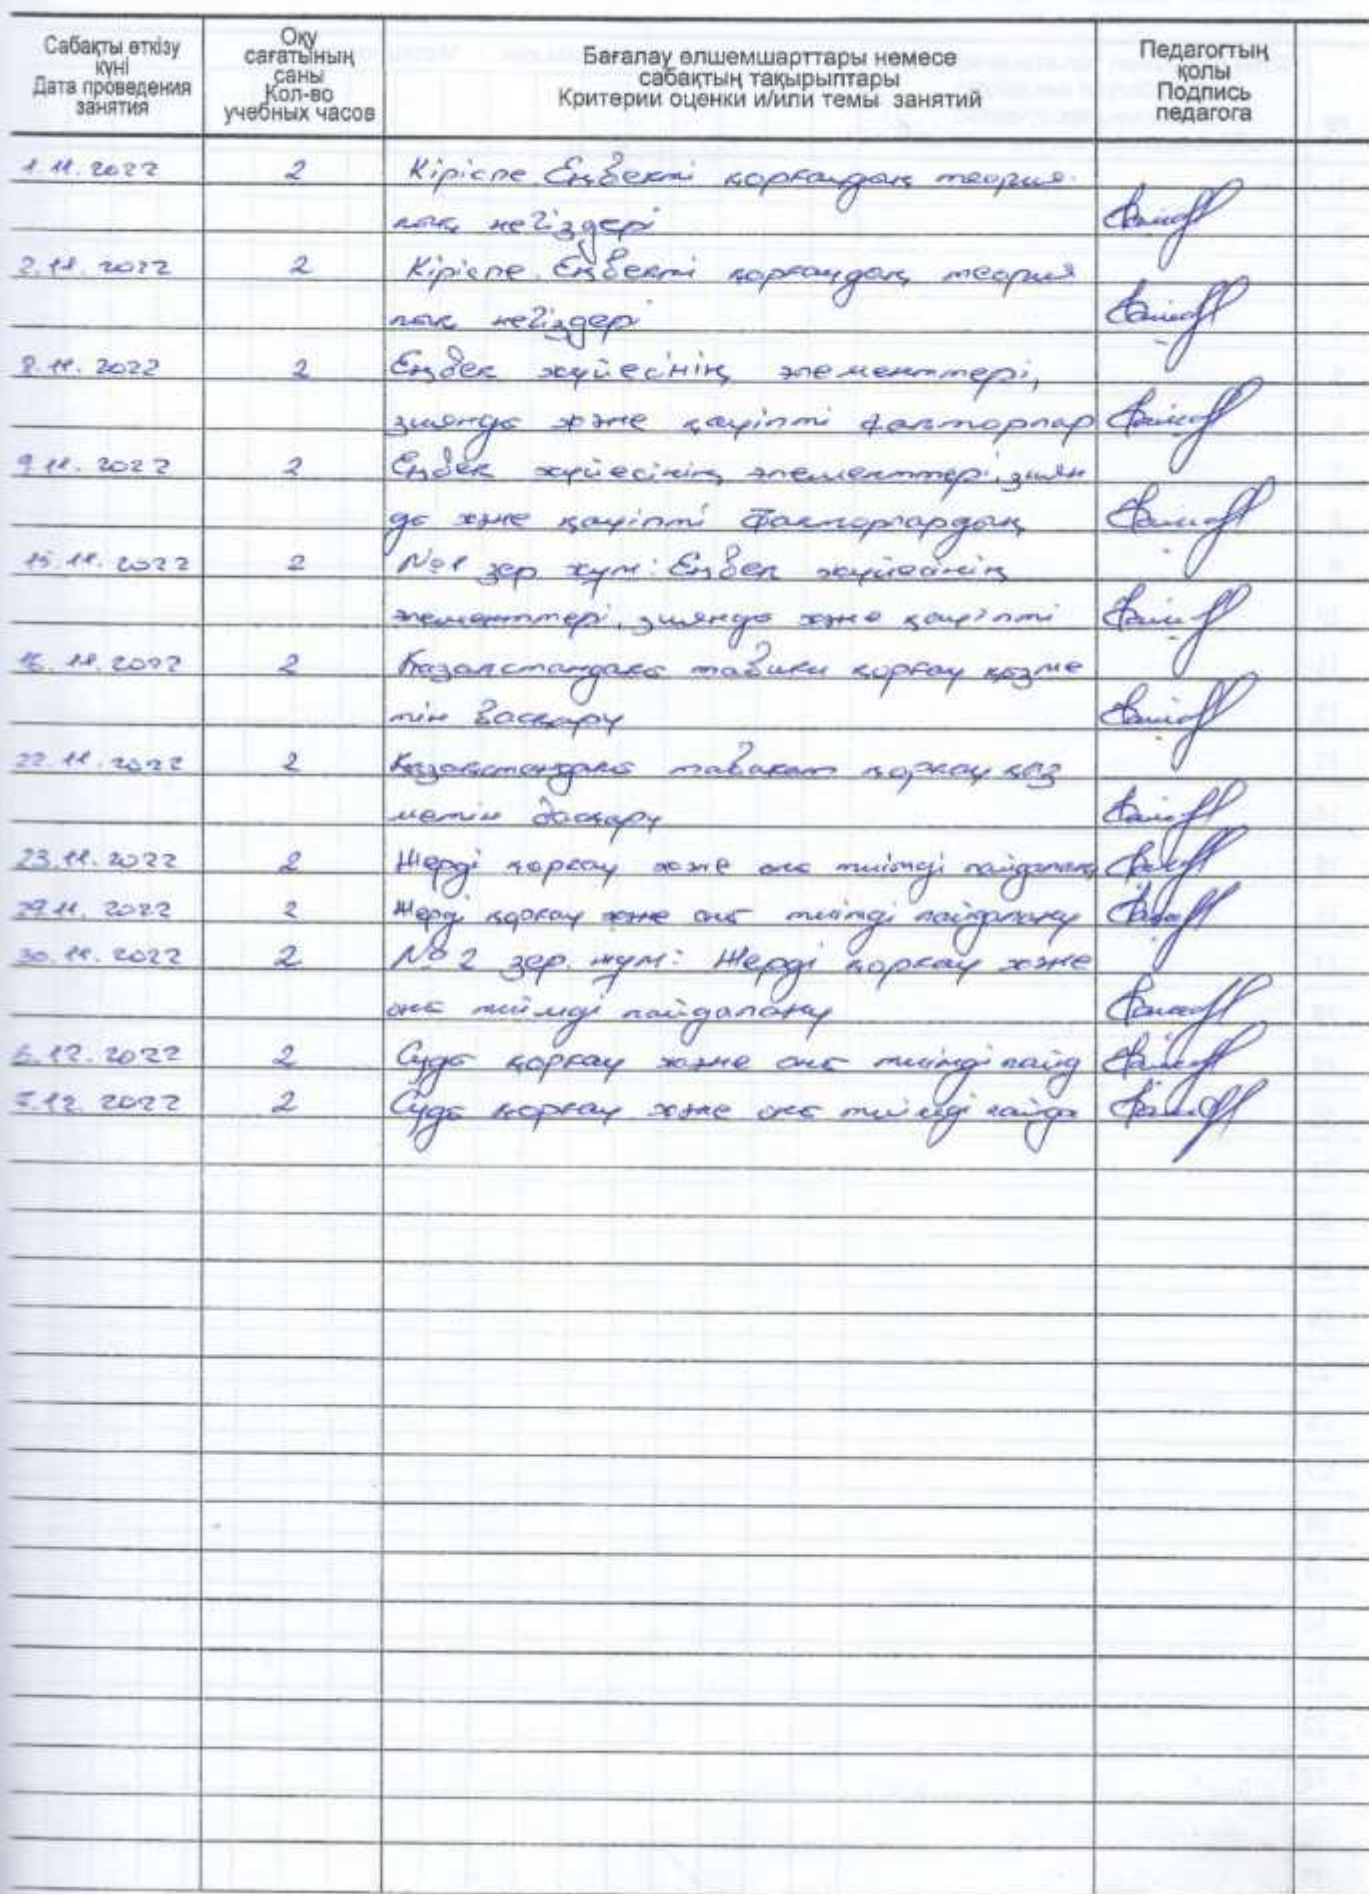 Сабақты өткізу күні Дата проведения занятия
Оқу сағатының саны Кол-во учебных часов
Бағалау өлшемшарттары немесе сабақтың тақырыптары Критерии оценки и/или темы занятий
Педагогтың қолы Подпись педагога
1.11.2022 2 Кіріспе. Еңбекті қорғаудың теория-
лық негіздері
2.11.2022 2 Кіріспе. Еңбекті қорғаудың теория
лық негіздері
8.11.2022 2 Еңбек жүйесінің элементтері,
зиянды және қауіпті факторлар
9.11.2022 2 Еңбек жүйесінің элементтері, зиян
ды және қауіпті факторлардың
15.11.2022 2 №1 зер жұм: Еңбек жүйесінің
элементтері, зиянды және қауіпті
16.11.2022 2 Қазақстандағы табиғи қорғау қызме
тін басқару
22.11.2022 2 Қазақстандағы табиғат қорғау қыз
метін басқару
23.11.2022 2 Жерді қорғау және оны тиімді пайдалану
29.11.2022 2 Жерді қорғау және оны тиімді пайдалану
30.11.2022 2 №2 зер. жұм: Жерді қорғау және
оны тиімді пайдалану
6.12.2022 2 Суды қорғау және оны тиімді пайд
12.2022 2 Суды қорғау және оны тиімді пайда